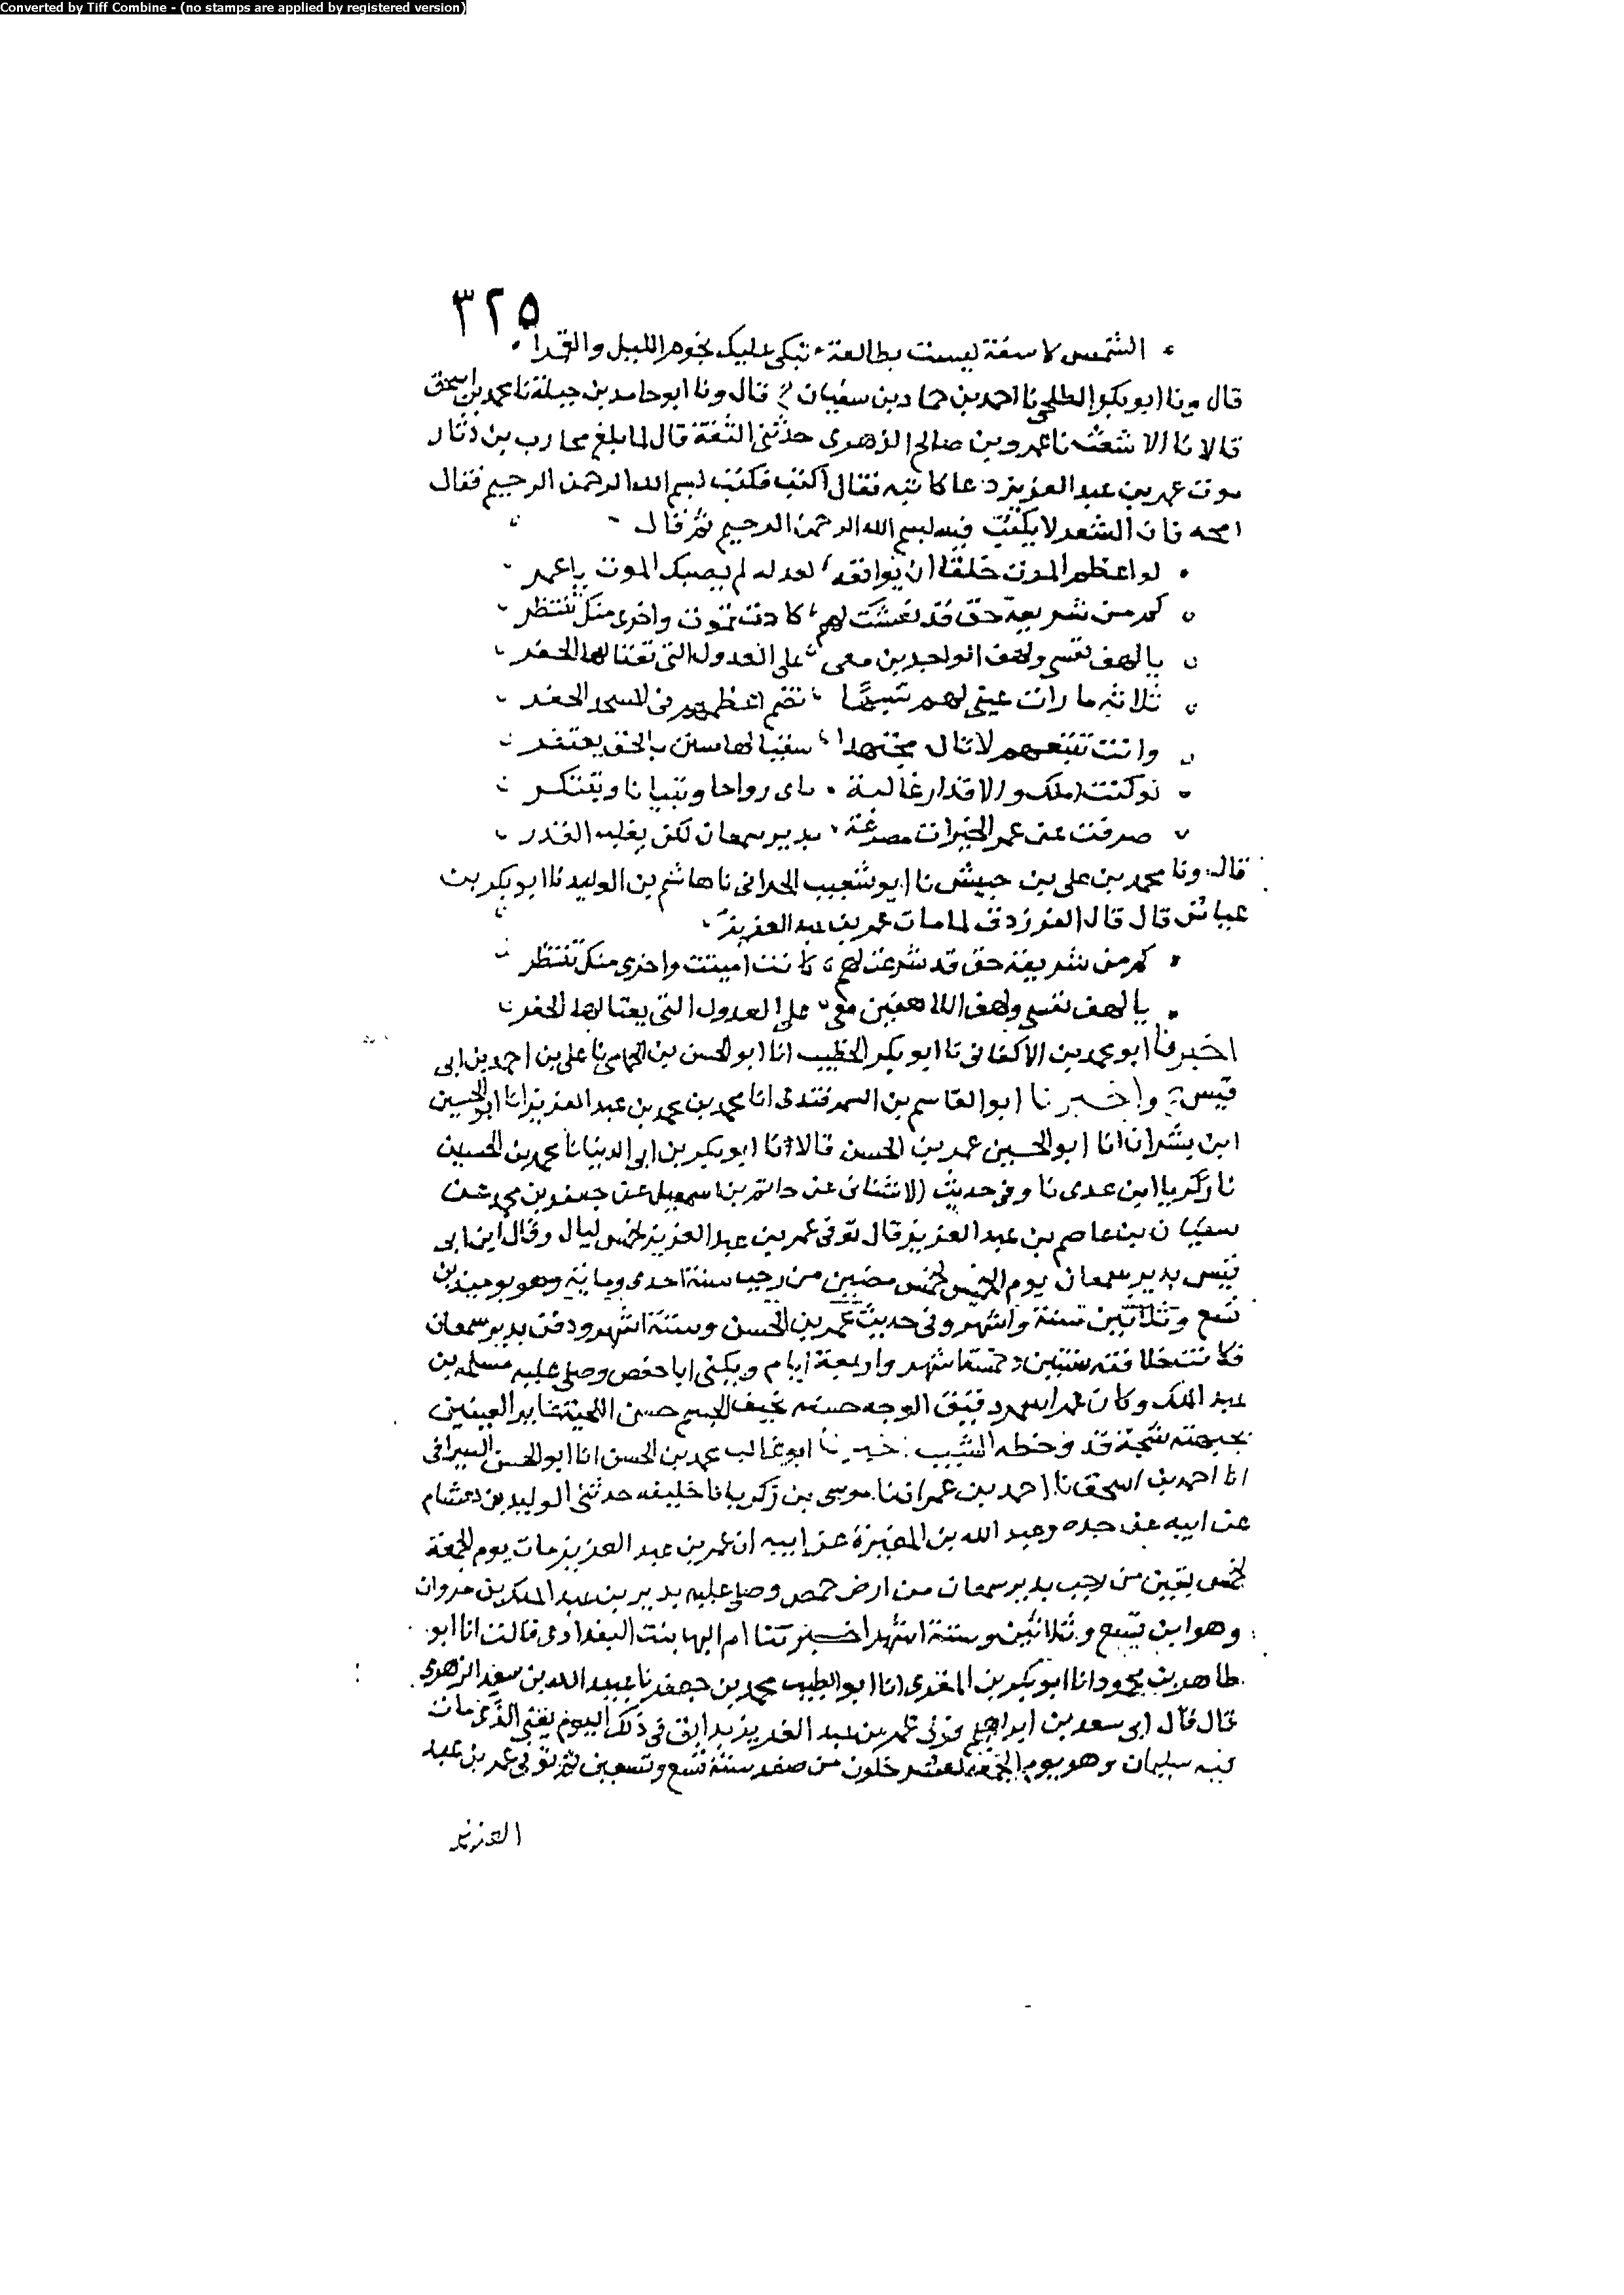 Converted by Tiff Combine - (no stamps are applied by registered version)
٣٢٥
الشمس كاسفة ليست بطالعة تبكى عليك نجوم الليل والقمرا
قال ونا ابو بكر الطلحى نا احمد بن حماد بن سفيان ح قال ونا ابو حامد بن جبلة نا محمد بن اسحق
قالا نا الاشعث نا عمرو بن صالح الزهرى حدثنى الثقة قال لما بلغ محارب بن دثار
موت عمر بن عبد العزيز دعا كاتبه فقال اكتب فكتب بسم الله الرحمن الرحيم فقال
امحه فان الشعر لا يكتب فيه بسم الله الرحمن الرحيم ثم قال
لو اعظم الموت خلقا ان يواقعه لعدله لم يصبك الموت يا عمر
كم من شريعة حق قد نعشت لهم كادت تموت واخرى منك تنتظر
يا لهف نفسى ولهف الواجدين معى على العدول التى تغتالها الحفر
ثلاثة ما رات عينى لهم شبها تضم اعظمهم فى المسجد الحفر
وانت تتبعهم لا تال مجتهدا سقيا لها سنن بالحق يفتقر
لو كنت املك والاقدار غالبة تاتى رواحا وتبيانا وتبتكر
صرفت عن عمر الخيرات مصرعه بدير سمعان لكن يغلب القدر
قال ونا محمد بن على بن حبيش نا ابو شعيب الحرانى نا هاشم بن الوليد نا ابو بكر بن
عياش قال قال الفرزدق لما مات عمر بن عبد العزيز
كم من شريعة حق قد شرعت لهم كانت اميتت واخرى منك تنتظر
يا لهف نفسى ولهف اللاهفين معى على العدول التى يغتالها الحفر
اخبرنا ابو محمد بن الاكفانى نا ابو بكر الخطيب انا ابو الحسن بن الحمامى نا على بن احمد بن ابى
قيس ح واخبرنا ابو القاسم بن السمرقندى انا محمد بن محمد بن عبد العزيز انا ابو الحسين
ابن بشران انا ابو الحسين عمر بن الحسن قالا انا ابو بكر بن ابى الدنيا نا محمد بن الحسين
نا زكريا ابن عدى نا وفى حديث الاشنانى عن حاتم بن اسمعيل عن جعفر بن محمد عن
سفيان بن عاصم بن عبد العزيز قال توفى عمر بن عبد العزيز لخمس ليال وقال ابن ابى
قيس بدير سمعان يوم الخميس لخمس مضين من رجب سنة احدى وماية وهو يوميذ ابن
تسع وثلاثين سنة واشهر وفى حديث عمر بن الحسن وستة اشهر ودفن بدير سمعان
فكانت خلافته سنتين وخمسة اشهر واربعة ايام ويكنى ابا حفص وصلى عليه مسلمه بن
عبد الملك وكان عمر اسمر دقيق الوجه حسنه نحيف الجسم حسن اللحية غاير العينين
بجبهته شجة قد وخطه الشيب اخبرنا ابو غالب محمد بن الحسن انا ابو الحسن السيرافى
انا احمد بن اسحق نا احمد بن عمران نا موسى بن زكريا نا خليفه حدثنى الوليد بن هشام
عن ابيه عن جده وعبد الله بن المغيرة عن ابيه ان عمر بن عبد العزيز مات يوم الجمعة
لخمس بقين من رجب بدير سمعان من ارض حمص وصلى عليه يزيد بن عبد الملك بن مروان
وهو ابن تسع وثلاثين وستة اشهر اخبرتنا ام البها بنت البغدادى قالت انا ابو
طاهر بن محمود انا ابو بكر بن المقرى انا ابو الطيب محمد بن جعفر نا عبيد الله بن سعد الزهرى
قال قال ابى سعد بن ابراهيم ولى عمر بن عبد العزيز بدابق فى ذلك اليوم يعنى الذى مات
فيه سليمان وهو يوم الجمعة لعشر خلون من صفر سنة تسع وتسعين ثم توفى عمر بن عبد
العزيز